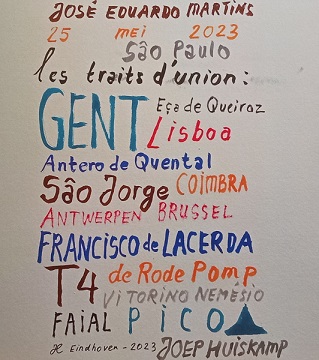 JOSÉ EDUARDO MARTINS
25 mei 2023
São Paulo
les traits d'union:
GENT Eça de Queiroz
Lisboa
Antero de Quental
São Jorge COIMBRA
ANTWERPEN BRUSSEL
FRANCISCO de LACERDA
T4 de Rode Pomp
VITORINO NEMÉSIO
FAIAL PICO
Eindhoven - 2023 JOEP HUISKAMP